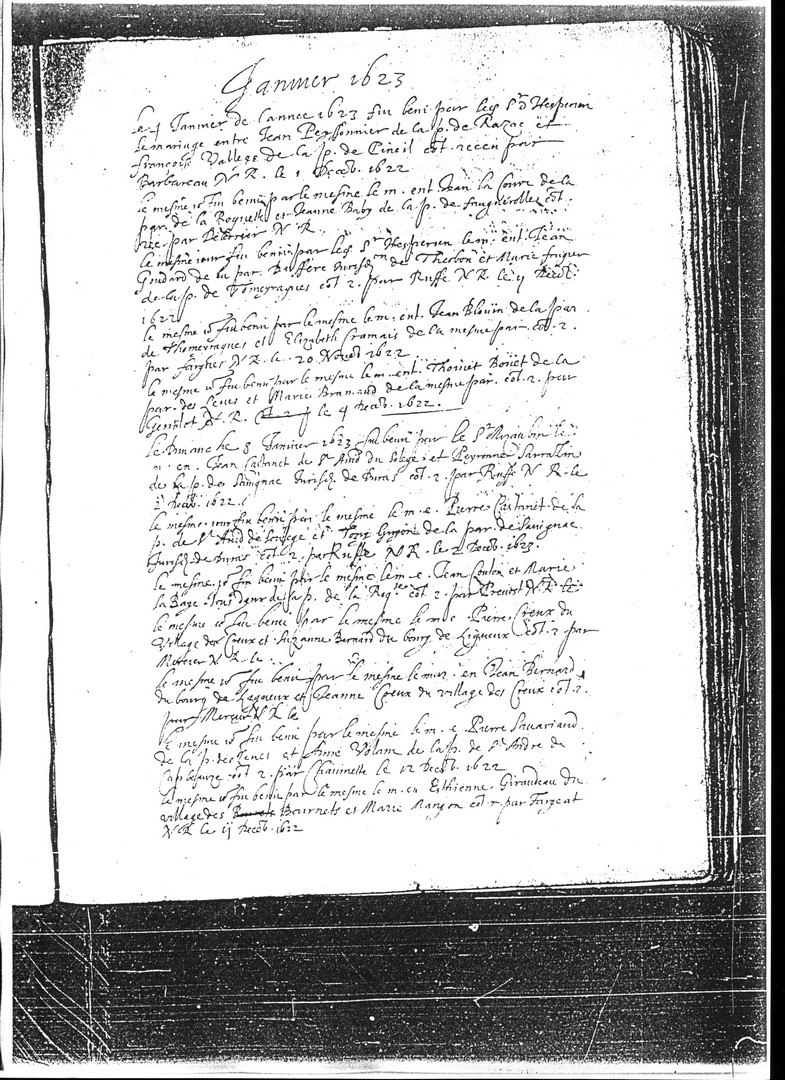 Janvier 1623
le 4 Janvier de l'annee 1623 fut beni par led Sr D Hesperien
le mariage entre Jean Peyssonnier de la p. de Razac et
françoise Vallege de la p. de Cineil cot. receu par
Barbareau N R. le 1 Decēb. 1622
le mesme io fut beni par le mesme le m. ent Jean la Coure de la
par. de la Roquelle et Jeanne Baby de la p. de fauguirolles cot.
rec. par N R
le mesme iour fut beni par led Sr Hesperien le m. ent. Jean
Goudard de la par. Baffere Jurisdon de Therbon et Marie
de la p. de Tomeyragues cot 2. par Ruffe N R. le ij Decēb.
1622
le mesme io fut beni par le mesme le m. ent. Jean Blouin de la par
de Thomeyragues et Elizabeth Cramais de la mesme par. cot. 2.
par farghes N R. le. 20 Noveb 1622
le mesme io fut beni par le mesme le m. ent. Thoinet Bouet de la
par. des Leves et Marie Brunaud de la mesme par. cot. 2. par
Gentilot N. R. le 4 Decēb. 1622.
le dimanche 8 Janvier 1623 fut beni par le Sr Mizaubin le
m. en. Jean Castanet de St Avid du Solege et Peyronne Sarrazin
de la p. de Savignac Jurisdon de Duras cot. 2. par Ruffe N R. le
2 Decēb. 1622.
le mesme iour fut beni par le mesme le m. e. Pierre Castanet de la
p. de St Avid de Solege et Guyon de la par. de Savignac
Jurisdon de Duras cot. 2. par Ruffe N R. le 2 Decēb. 1623.
le mesme io fut beni par le mesme le m. e Jean Couton et Marie
la Bage de la p. de la Roqte cot 2. par Prevost N R. le
le mesme io fut beni par le mesme le m. e Pierre Creux du
village des Creux et Suzanne Bernard du bourg de Ligueux cot. 2 par
Mercier N R. le
le mesme io fut beni par le mesme le mar. en Jean Bernard
du bourg de Legueux et Jeanne Creux du village des Creux cot. 2.
par Mercier N R le
le mesme io fut beni par le mesme le m. e Pierre Sauvariaud
de la p. des Leves et Anne Volane de la p. de St Andre de
Capbeauze cot 2. par Chauvinette le 12 Decēb. 1622
le mesme io fut beni par le mesme le m. en Esthienne Giraudeau du
village des Bournets et Marie Mangon cot. r. par Fargeat
N R le ij Decēb. 1622